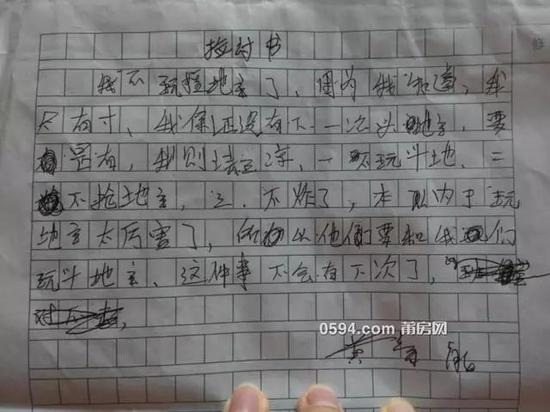 检讨书
我不玩抢地主了，因为我知道，我
只有寸、我保证没有下一次斗地主，要
是有，我则
一不玩斗地、二
不抢地主，三、不炸了，本以为于玩
地主太厉害了，所以他们要和我们
玩斗地主、这件事不会有下次了，
对不
黄
0594.com 莆房网